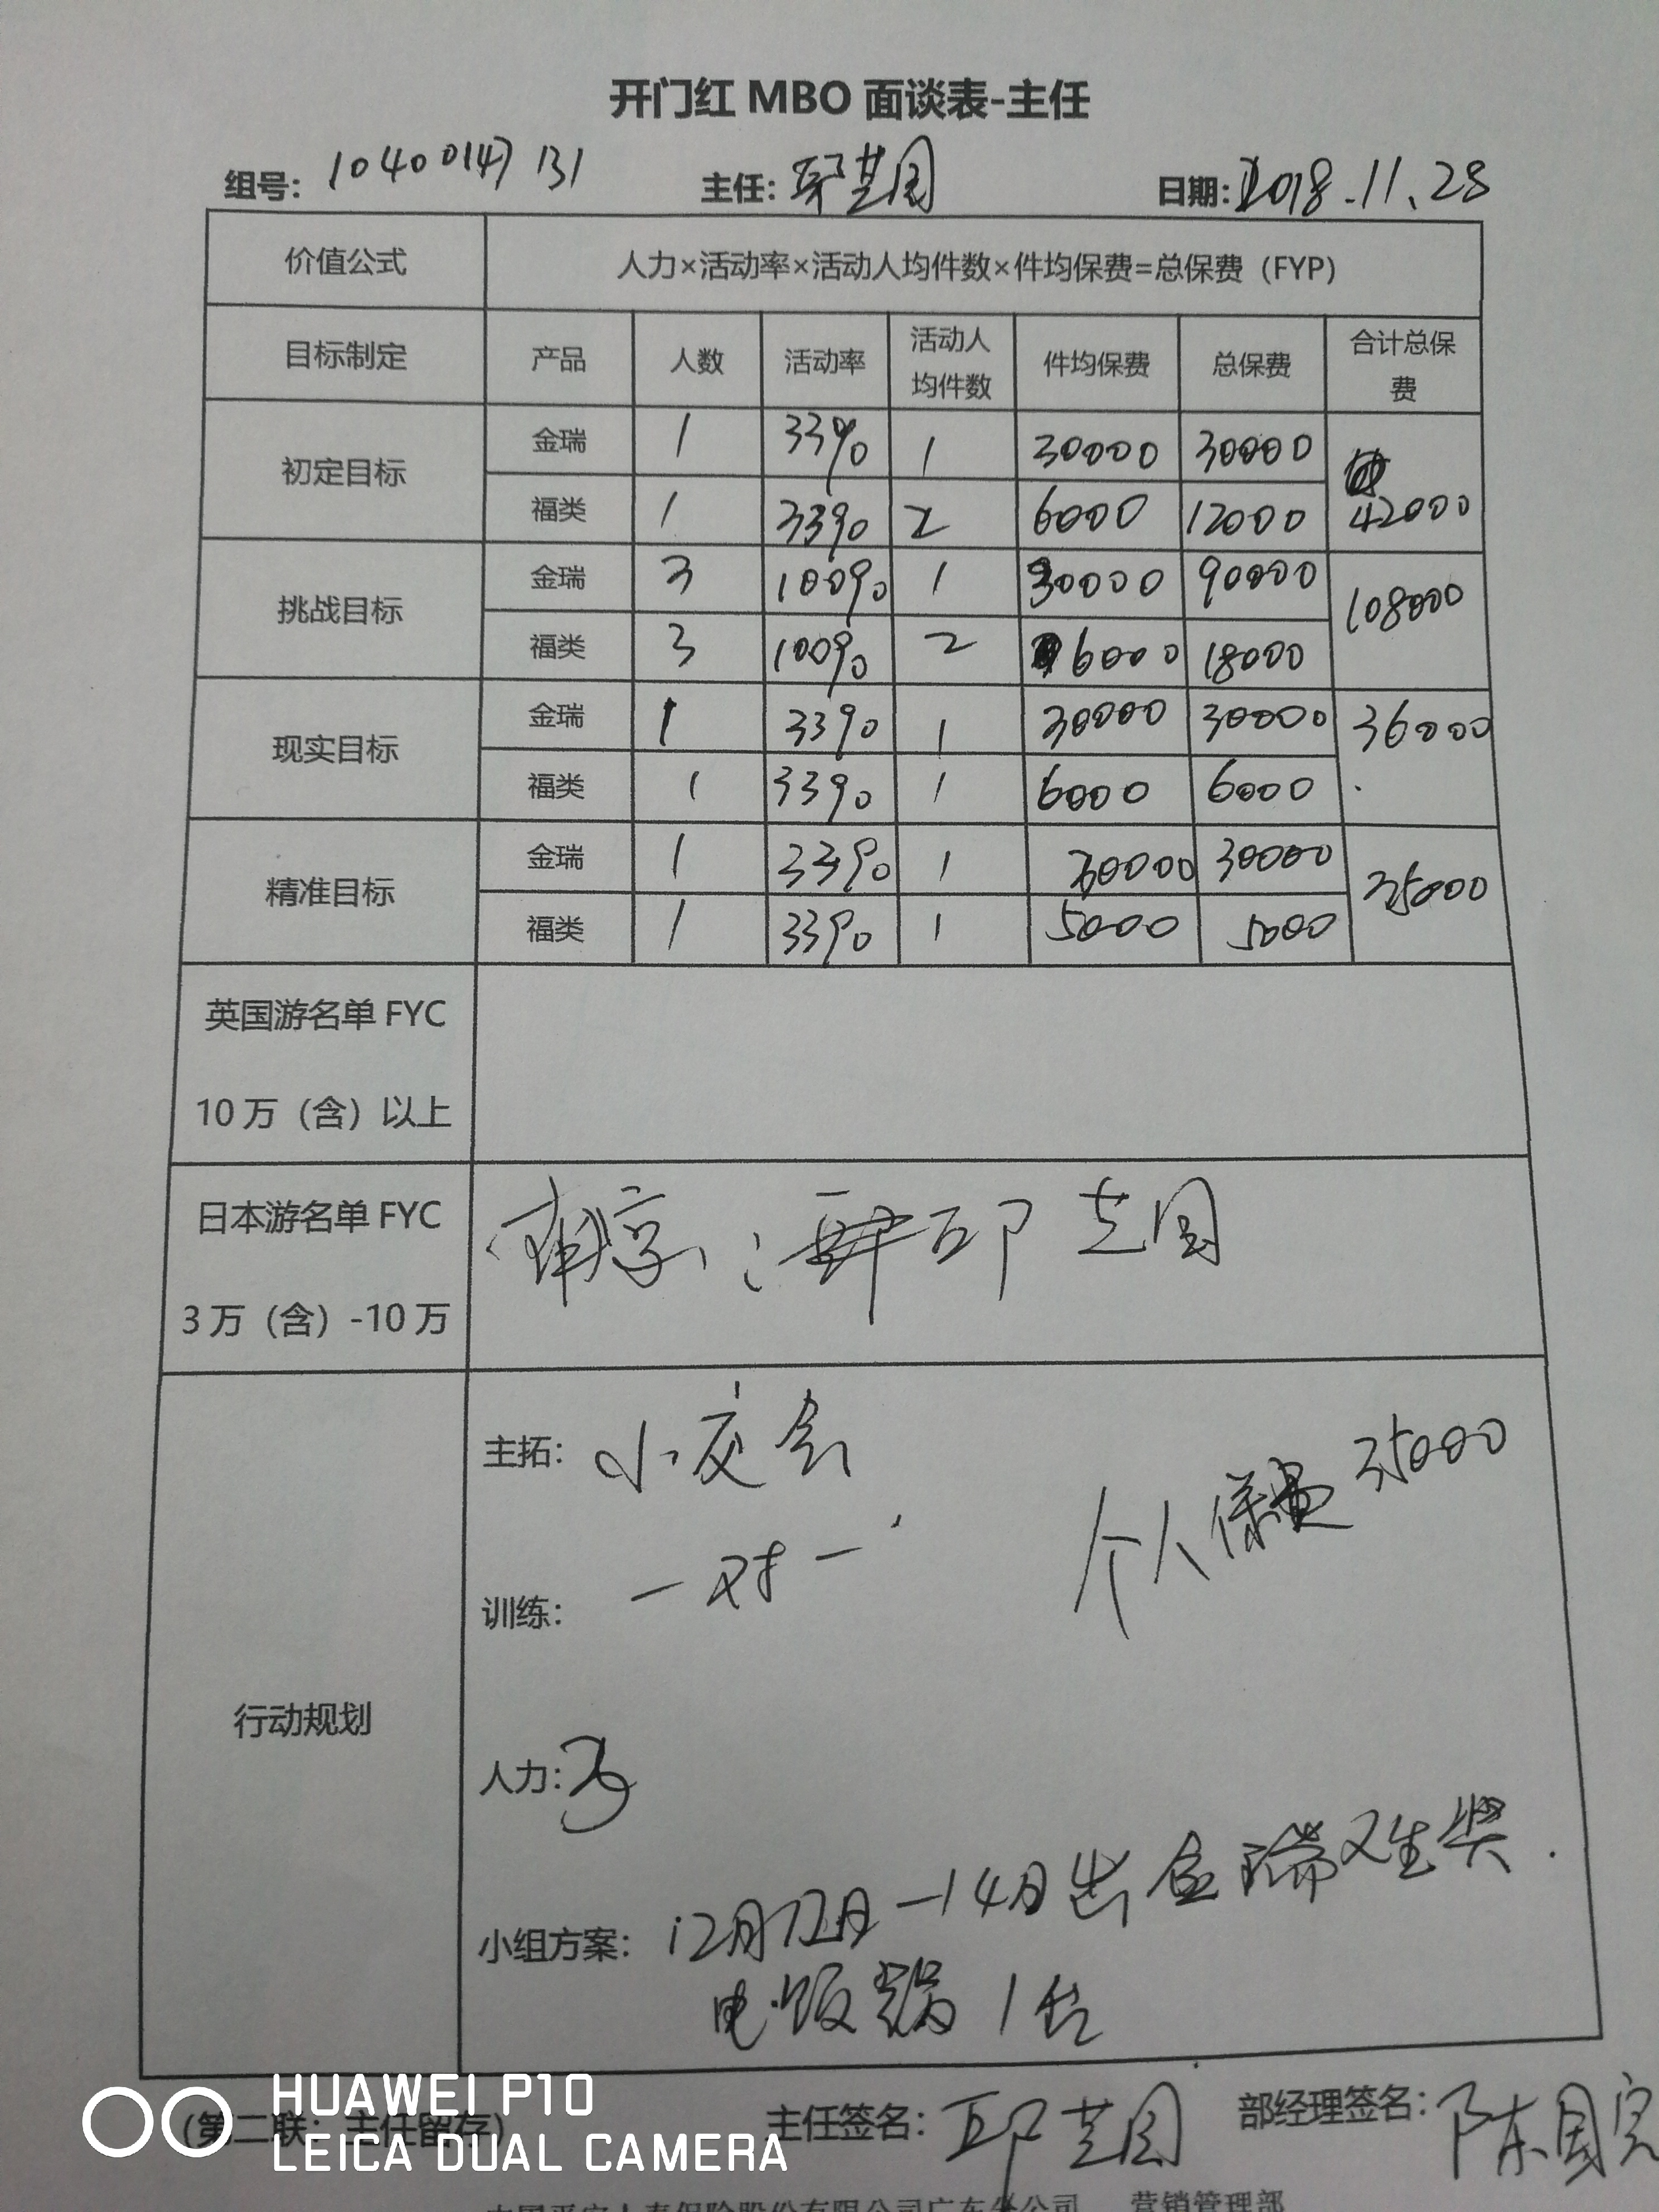 开门红 MBO 面谈表-主任
组号: 10400147131 主任: 邱芝园 日期: 2018.11.28
价值公式 人力×活动率×活动人均件数×件均保费=总保费（FYP）
目标制定 产品 人数 活动率 活动人均件数 件均保费 总保费 合计总保费
初定目标 金瑞 1 33% 1 30000 30000 42000
福类 1 33% 2 6000 12000
挑战目标 金瑞 3 100% 1 30000 90000 108000
福类 3 100% 2 6000 18000
现实目标 金瑞 1 33% 1 30000 30000 36000
福类 1 33% 1 6000 6000
精准目标 金瑞 1 33% 1 30000 30000 35000
福类 1 33% 1 5000 5000
英国游名单 FYC
10万（含）以上
日本游名单 FYC
3万（含）-10万
南京: 邱芝园
行动规划
主拓: 小灰会
个人保费 35000
训练: 一对一
人力: 3
小组方案: 12月12日-14日出金瑞
电饭锅1台
(第二联: 主任留存) 主任签名: 邱芝园 部经理签名: 陈国
中国平安人寿保险股份有限公司广东分公司 营销管理部
HUAWEI P10
LEICA DUAL CAMERA